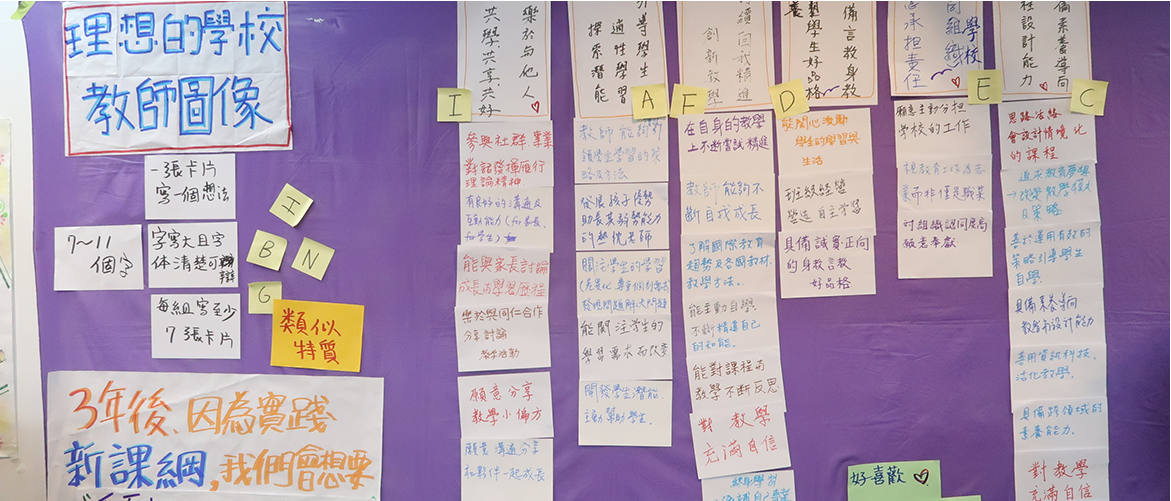 理想的學校
教師圖像
一張卡片
寫一個想法
7～11
個字
字寫大且字
體清楚可辯
每組寫至少
7張卡片
I
B
N
G
類似
特質
3年後、因為實踐
新課綱,我們會想要
樂於與他人
共學共享共好
I
參與社群 專業
對話發揮雁行
理論精神
有良好的溝通及
互動能力
能與家長討論
成長與學習歷程
樂於與同仁合作
分享討論
教學活動
願意分享
教學小偏方
願意溝通分享
和夥伴一起成長
引導學生
適性學習
探索潛能
A
發展孩子優勢
助長其弱勢能力
的學校老師
關注學生的學習
能關注學生的
學習需求而改變
開發學生潛能.
主動幫助學生.
續自我精進
創新教學
F
在自身的教學
上不斷嘗試精進
教師能夠不
斷自我成長
了解國際教育
趨勢及各國教材.
教學方法.
能主動自學.
不斷精進自己
的知能.
能對課程與
教學不斷反思
對教學
充滿自信
備言教身教
學生好品格
D
能關心激勵
學生的學習與
生活
班級經營
營造自主學習
具備誠實.正向
的身教言教
好品格
同組織學校
承擔責任
E
願意主動分擔
學校的工作
視教育工作為志
業而非僅是職業
對組織認同度高
願意奉獻
備素養導向
程設計能力
C
思路活絡
會設計情境化
的課程
追求教育夢想
→改變教學模式
及策略
善於運用有效的
策略引導學生
自學.
具備素養導向
教學的設計能力
善用資訊科技,
活化教學.
具備跨領域的
素養能力.
對教學
充滿自信
好喜歡♡